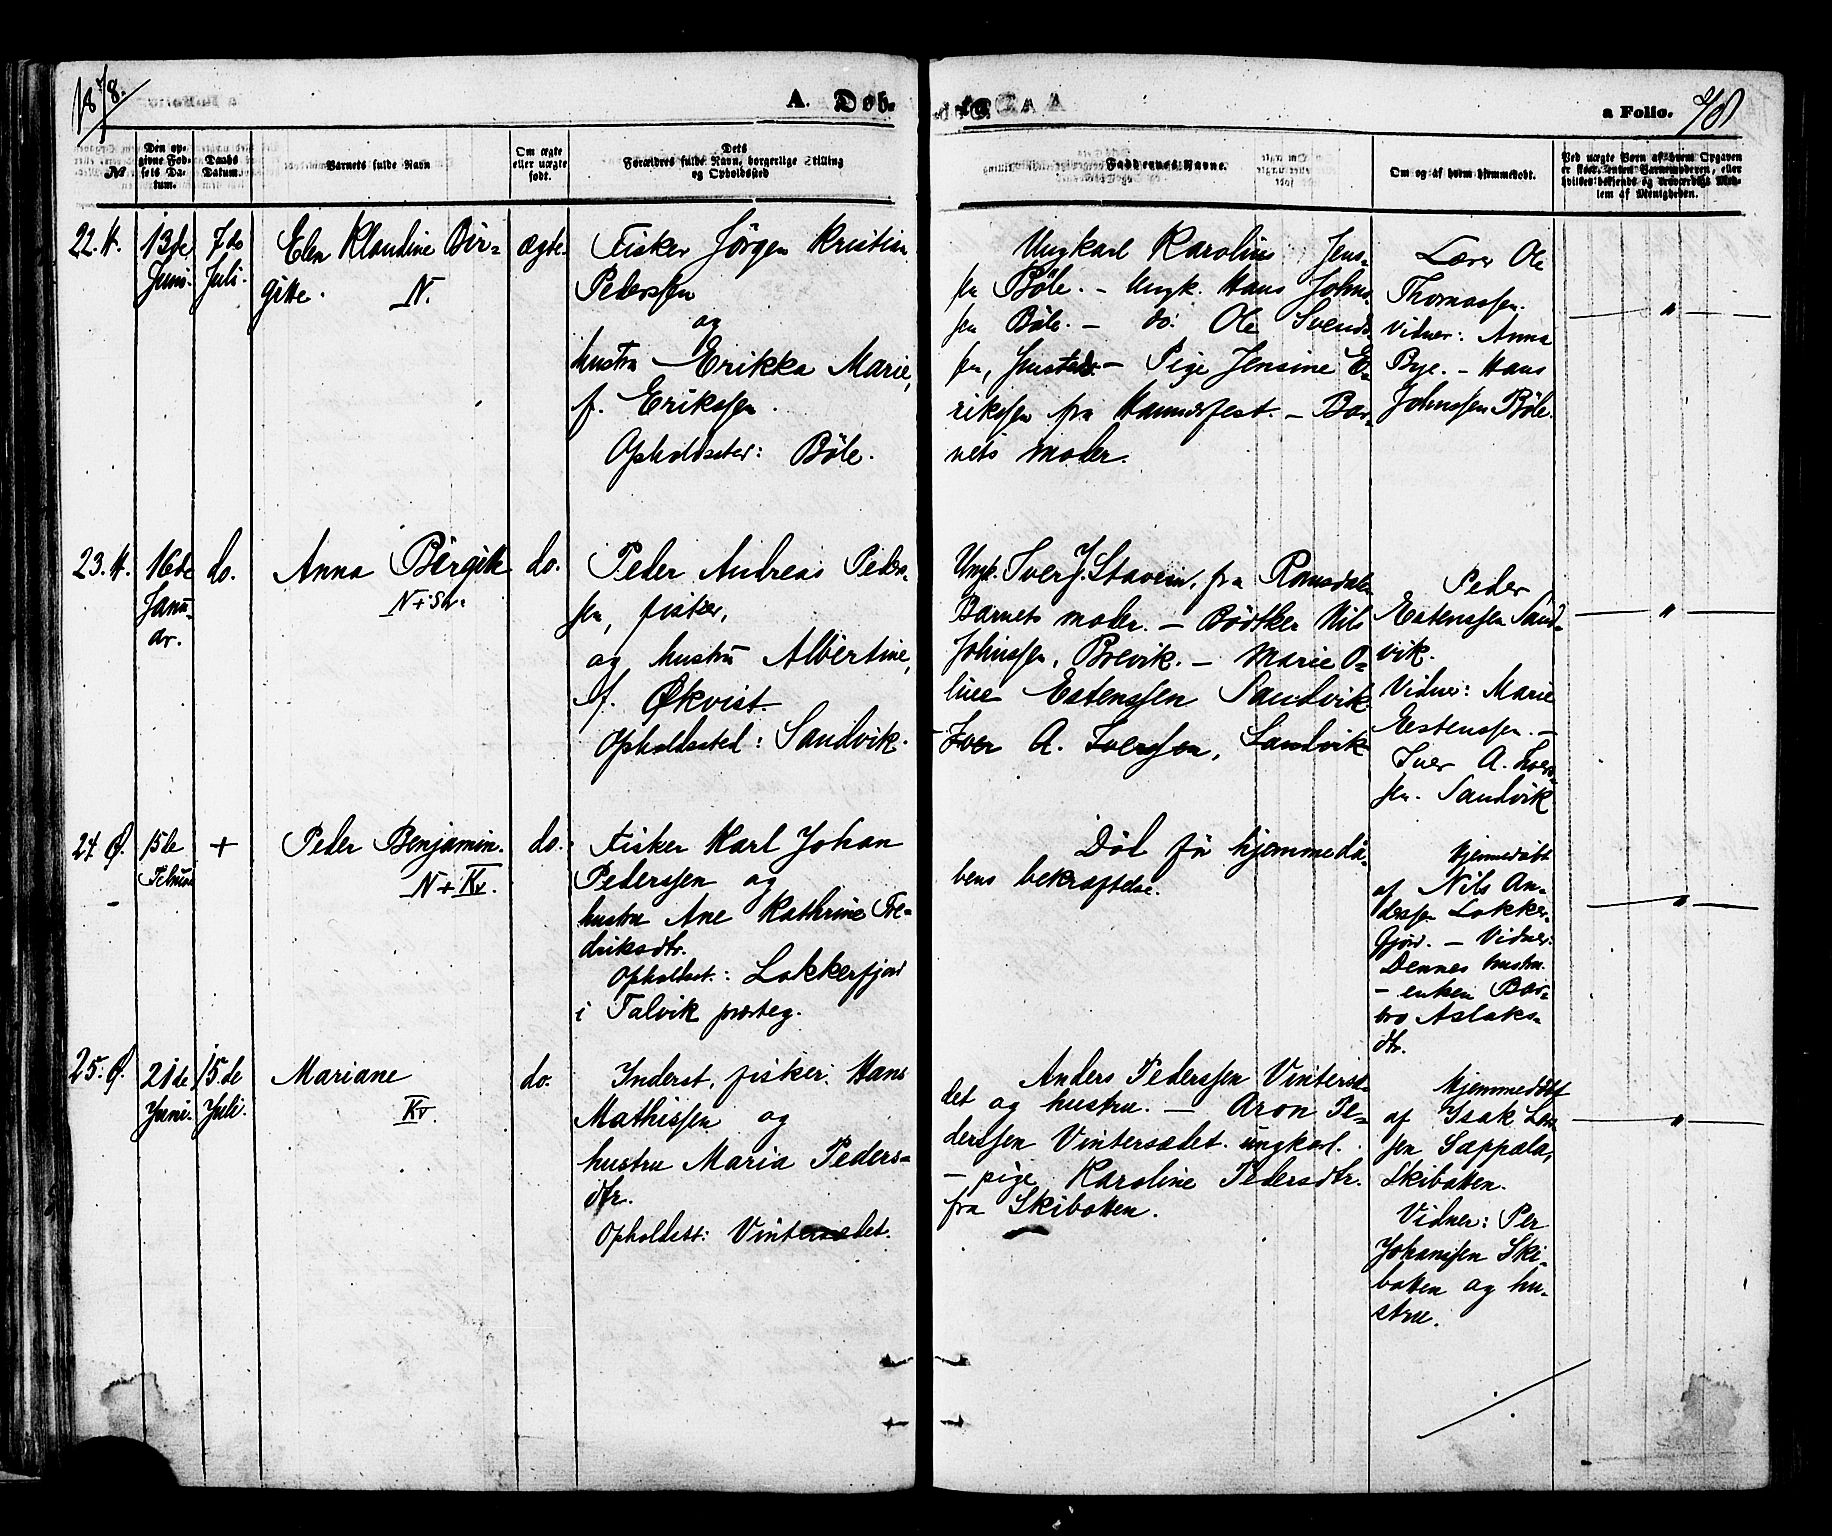 1878.
A. Døb.
a Folio. 48
No.
Den opgivne Fødsels Datum.
Daabs Datum.
Barnets fulde Navn
Om ægte eller uægte født.
Dets Forældres fulde Navn, borgerlige Stilling og Opholdssted
Faddernes Navne.
Om og af hvem hjemmedøbt.
Ved uægte Børn af hvem Opgaven er skeet, enten Barnemoderen, eller hvilket bekjendt og troværdigt Medlem af Menigheden.
22. K.
13de
Juni.
7do
Juli.
Elen Klaudine Bir-
gitte. N.
ægte.
Fisker Jørgen Kristian
Pedersen
og
hustru Erikka Marie,
f. Eriksen.
Opholdsster: Böle.
Ungkarl Karolius Jens-
sen Böle. – Ungk. Hans Johns-
sen Böle. – do. Ole Svend-
sen, – Pige Jensine E-
rikssen fra Hammerfest. – Bar-
nets moder.
Lærer Ole
Thomassen.
Vidner: Anna
Bye. – Hans
Johnssen Böle.
"
23. K.
16de
Janu-
ar.
do.
Anna Birgitte
N + Sv.
do.
Peder Andreas Peder-
sen, fisker,
og hustru Albertine,
f. Økvist.
Opholdssted: Sandvik.
Ungk. Iver J. Stavem, fra Romsdalen
Barnets moder. – Bödtker Nils
Johnssen, Brevik. – Marie O-
line Estenssen Sandvik
– Iver A. Iverssen, Sandvik
Peder
Estenssen Sand-
vik.
Vidner: Marie
Estenssen. –
Iver A. Ivers-
sen. Sandvik
"
24. Ø.
15de
Februar
+
Peder Benjamin.
N + Kv.
do.
Fisker Karl Johan
Pederssen og
hustru Ane Kathrine Fre-
driksdtr.
Opholdsst.: Lokkerfjord
i Talvik præsteg.
Död för hjemmedå-
bens bekræftelse.
Hjemmedöbt
af Nils An-
derssen Lokker-
fjord. – Vidner:
Dennes hustru.
– enken Bar-
bro Aslaks-
dtr.
"
25. Ø.
21de
Juni.
15de
Juli.
Mariane
Kv.
do.
Inderst, fisker. Hans
Mathissen og
hustru Maria Peders-
dtr.
Opholdsst: Vintersædet.
Anders Pederssen Vintersæ-
det og hustru. – Aron Pe-
derssen Vintersædet. ungkarl.
– pige Karoline Pedersdtr.
fra Skibotten.
Hjemmedöbt
af Isak Lar-
sen Sappala,
Skibotten.
Vidner: Per
Johanssen Ski-
botten og hu-
stru.
"